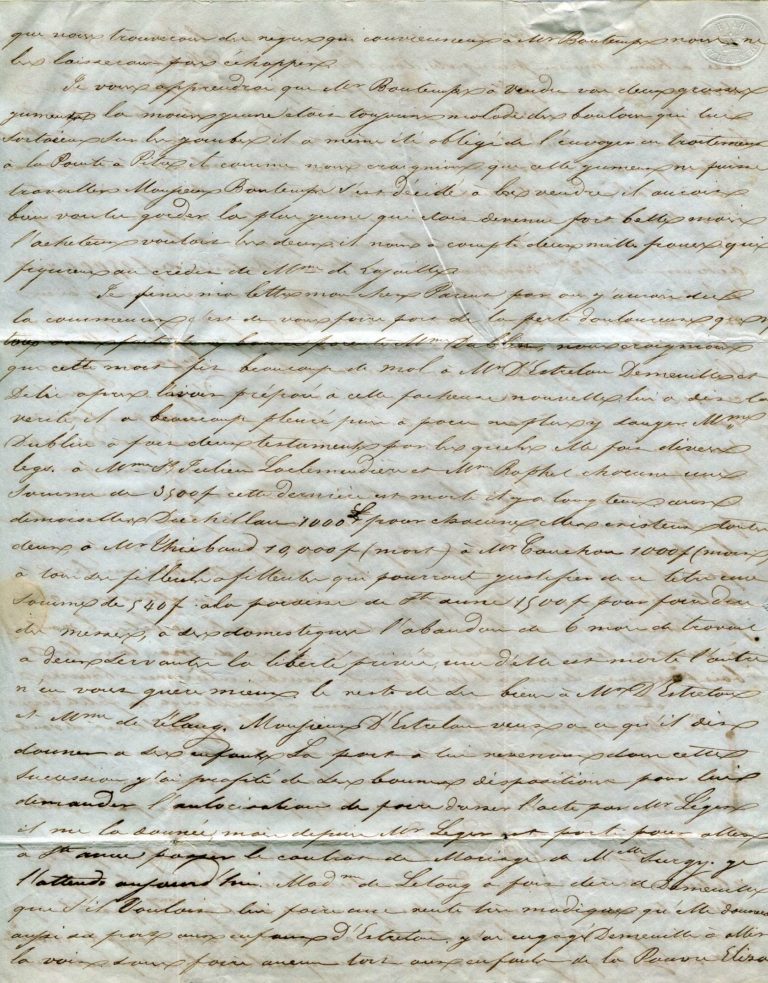 que nous trouverons des negres qui conviennent à Mr Boutemps nous ne
les laisserons pas échapper
Je vous apprendrai que Mr Boutemps a vendu vos deux grosses
juments la moins jeune etait toujours malade des boutons qui lui
sortaient sur les jambes il a meme été obligé de l'envoyer en traitement
à la Pointe à Pitre et comme nous craignions que cette jument ne puisse
travailler Monsieur Boutemps s'est décidé à les vendre, il aurait
bien voulu garder la plus jeune qui etait devenue fort belle mais
l'acheteur voulait les deux il nous a compté deux mille francs qui
figurent au crédit de Mme de Lajaille
Je finis ma lettre mon cher Parent par ou j'aurais dû
la commencer c'est de vous faire part de la perte douloureuse que
tous Mme nous craignions
que cette mort fit beaucoup de mal à Mr D'Estrelan Demeuille et
Delie apres l'avoir préparé à cette facheuse nouvelle lui a dit la
verité il a beaucoup pleuré peu à peu on plus y songer Mme
Dublin a fait deux testaments par lesquels elle fait divers
legs. à Mme St Julien et Mme Raphel chacune une
somme de 3500f cette derniere est morte il y a longtems aux
demoiselles Duchillau 1000 pour chacune elles existent toutes
deux à Mr Thiebaud 10,000f (mort) à Mr 1000f (mort)
à tous ses filleuls & filleules qui pourront justifier de ce titre une
somme de 540f à la paroisse de Ste Anne 1500f pour faire dire
des messes, à ses domestiques l'abandon de 6 mois de travail
à deux servantes la liberté une d'elle est morte l'autre
n'en vaut guere mieux le reste de ses biens à Mr D'Estrelan
et Mme de Monsieur D'Estrelan veut a ce qu'il dit
donner a ses enfants La part à lui revenant dans cette
sucession j'ai profité de ses bonnes dispositions pour lui
demander l'autorisation de faire dresser l'acte par Mr Leger
il me l'a donnée, mais depuis Mr Leger est parti pour aller
à Ste Anne passer le contrat de Mariage de Mlle je
l'attends aujourd'hui. Madme de a fait dire à Demeuille
que s'il voulait lui faire une rente tres modique qu'elle donnerait
aussi sa part aux enfants D'Estrelan, j'ai engagé Demeuille à aller
la voir sans faire aucun tort aux enfants de la Pauvre Eliza